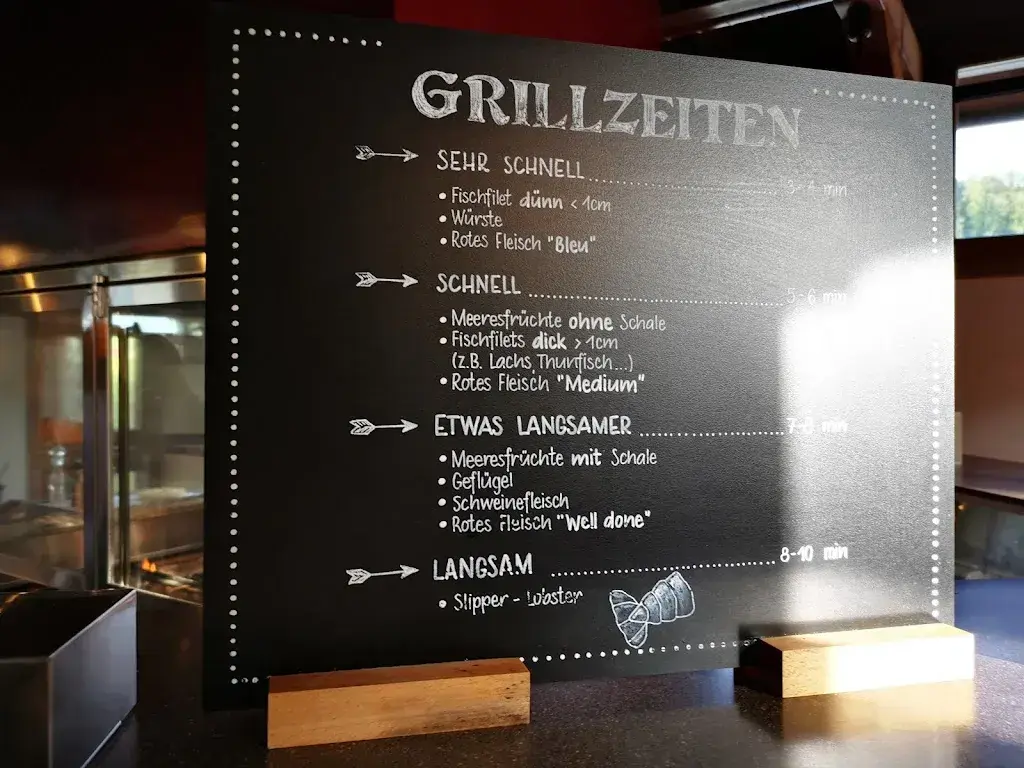 GRILLZEITEN
SEHR SCHNELL ........ 3-4 min
• Fischfilet dünn < 1cm
• Würste
• Rotes Fleisch "Bleu"
SCHNELL ........ 5-6 min
• Meeresfrüchte ohne Schale
• Fischfilets dick > 1cm
(z.B. Lachs, Thunfisch...)
• Rotes Fleisch "Medium"
ETWAS LANGSAMER ........ 7-8 min
• Meeresfrüchte mit Schale
• Geflügel
• Schweinefleisch
• Rotes Fleisch "Well done"
LANGSAM ........ 8-10 min
• Slipper - Lobster